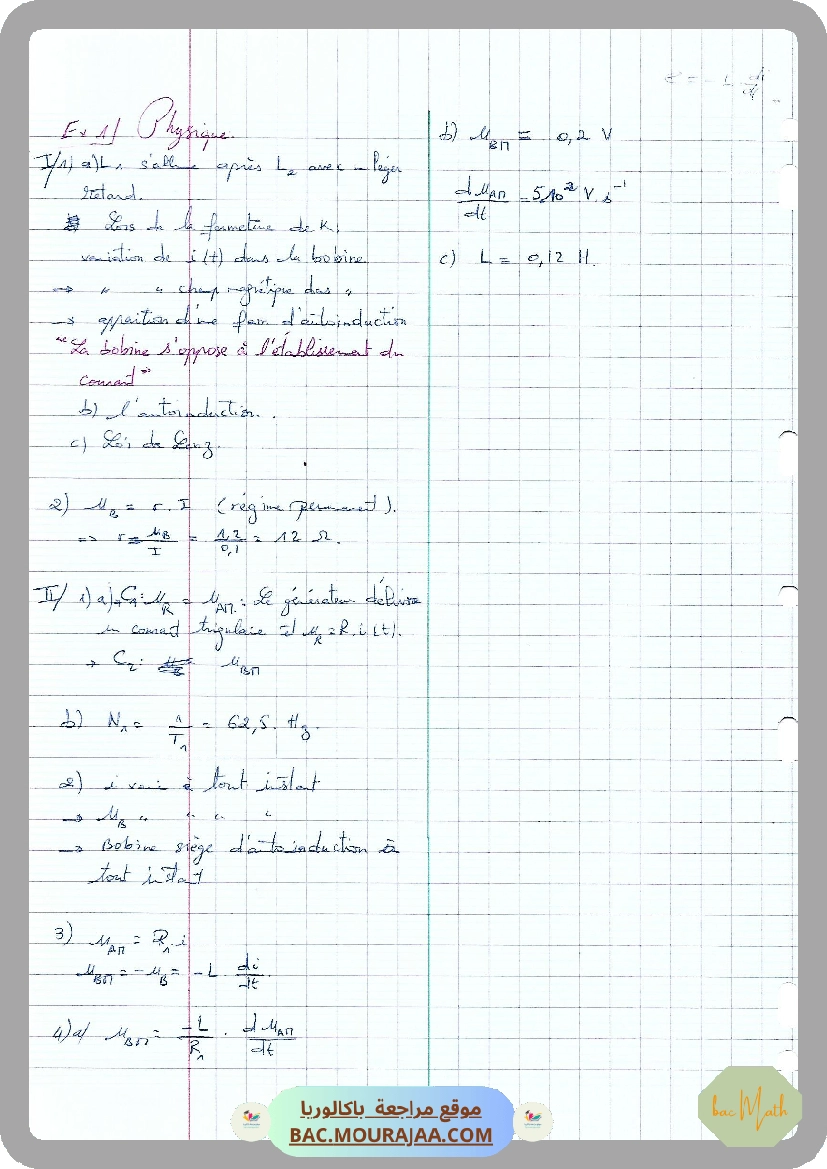 Ex 1/ Physique.
I/1) a) L1 s'allume après L2 avec un léger
retard.
Lors de la fermeture de K,
variation de i(t) dans la bobine
→ " " champ magnétique dans "
→ apparition d'une fem d'autoinduction
"La bobine s'oppose à l'établissement du
courant"
b) l'autoinduction.
c) Loi de Lenz.
2) uB = r. I (régime permanent).
=> r = uB/I = 1,2/0,1 = 12 Ω.
II/ 1) a) C1: uR = uAM : Le générateur délivre
un courant triangulaire et uR = R. i(t).
→ C2: uBM
b) N1 = 1/T1 = 62,5. Hz.
2) i varie à tout instant
→ uB " " " "
→ Bobine siège d'autoinduction à
tout instant
3) uAM = R1.i
uBM = -uB = -L di/dt.
4) a/ uBM = -L/R1 . duAM/dt
e = - L di/dt
b) uBM = 0,2 V
duAM/dt = 5.10² V.s⁻¹
c) L = 0,12 H.
موقع مراجعة باكالوريا
BAC.MOURAJAA.COM
bac Math